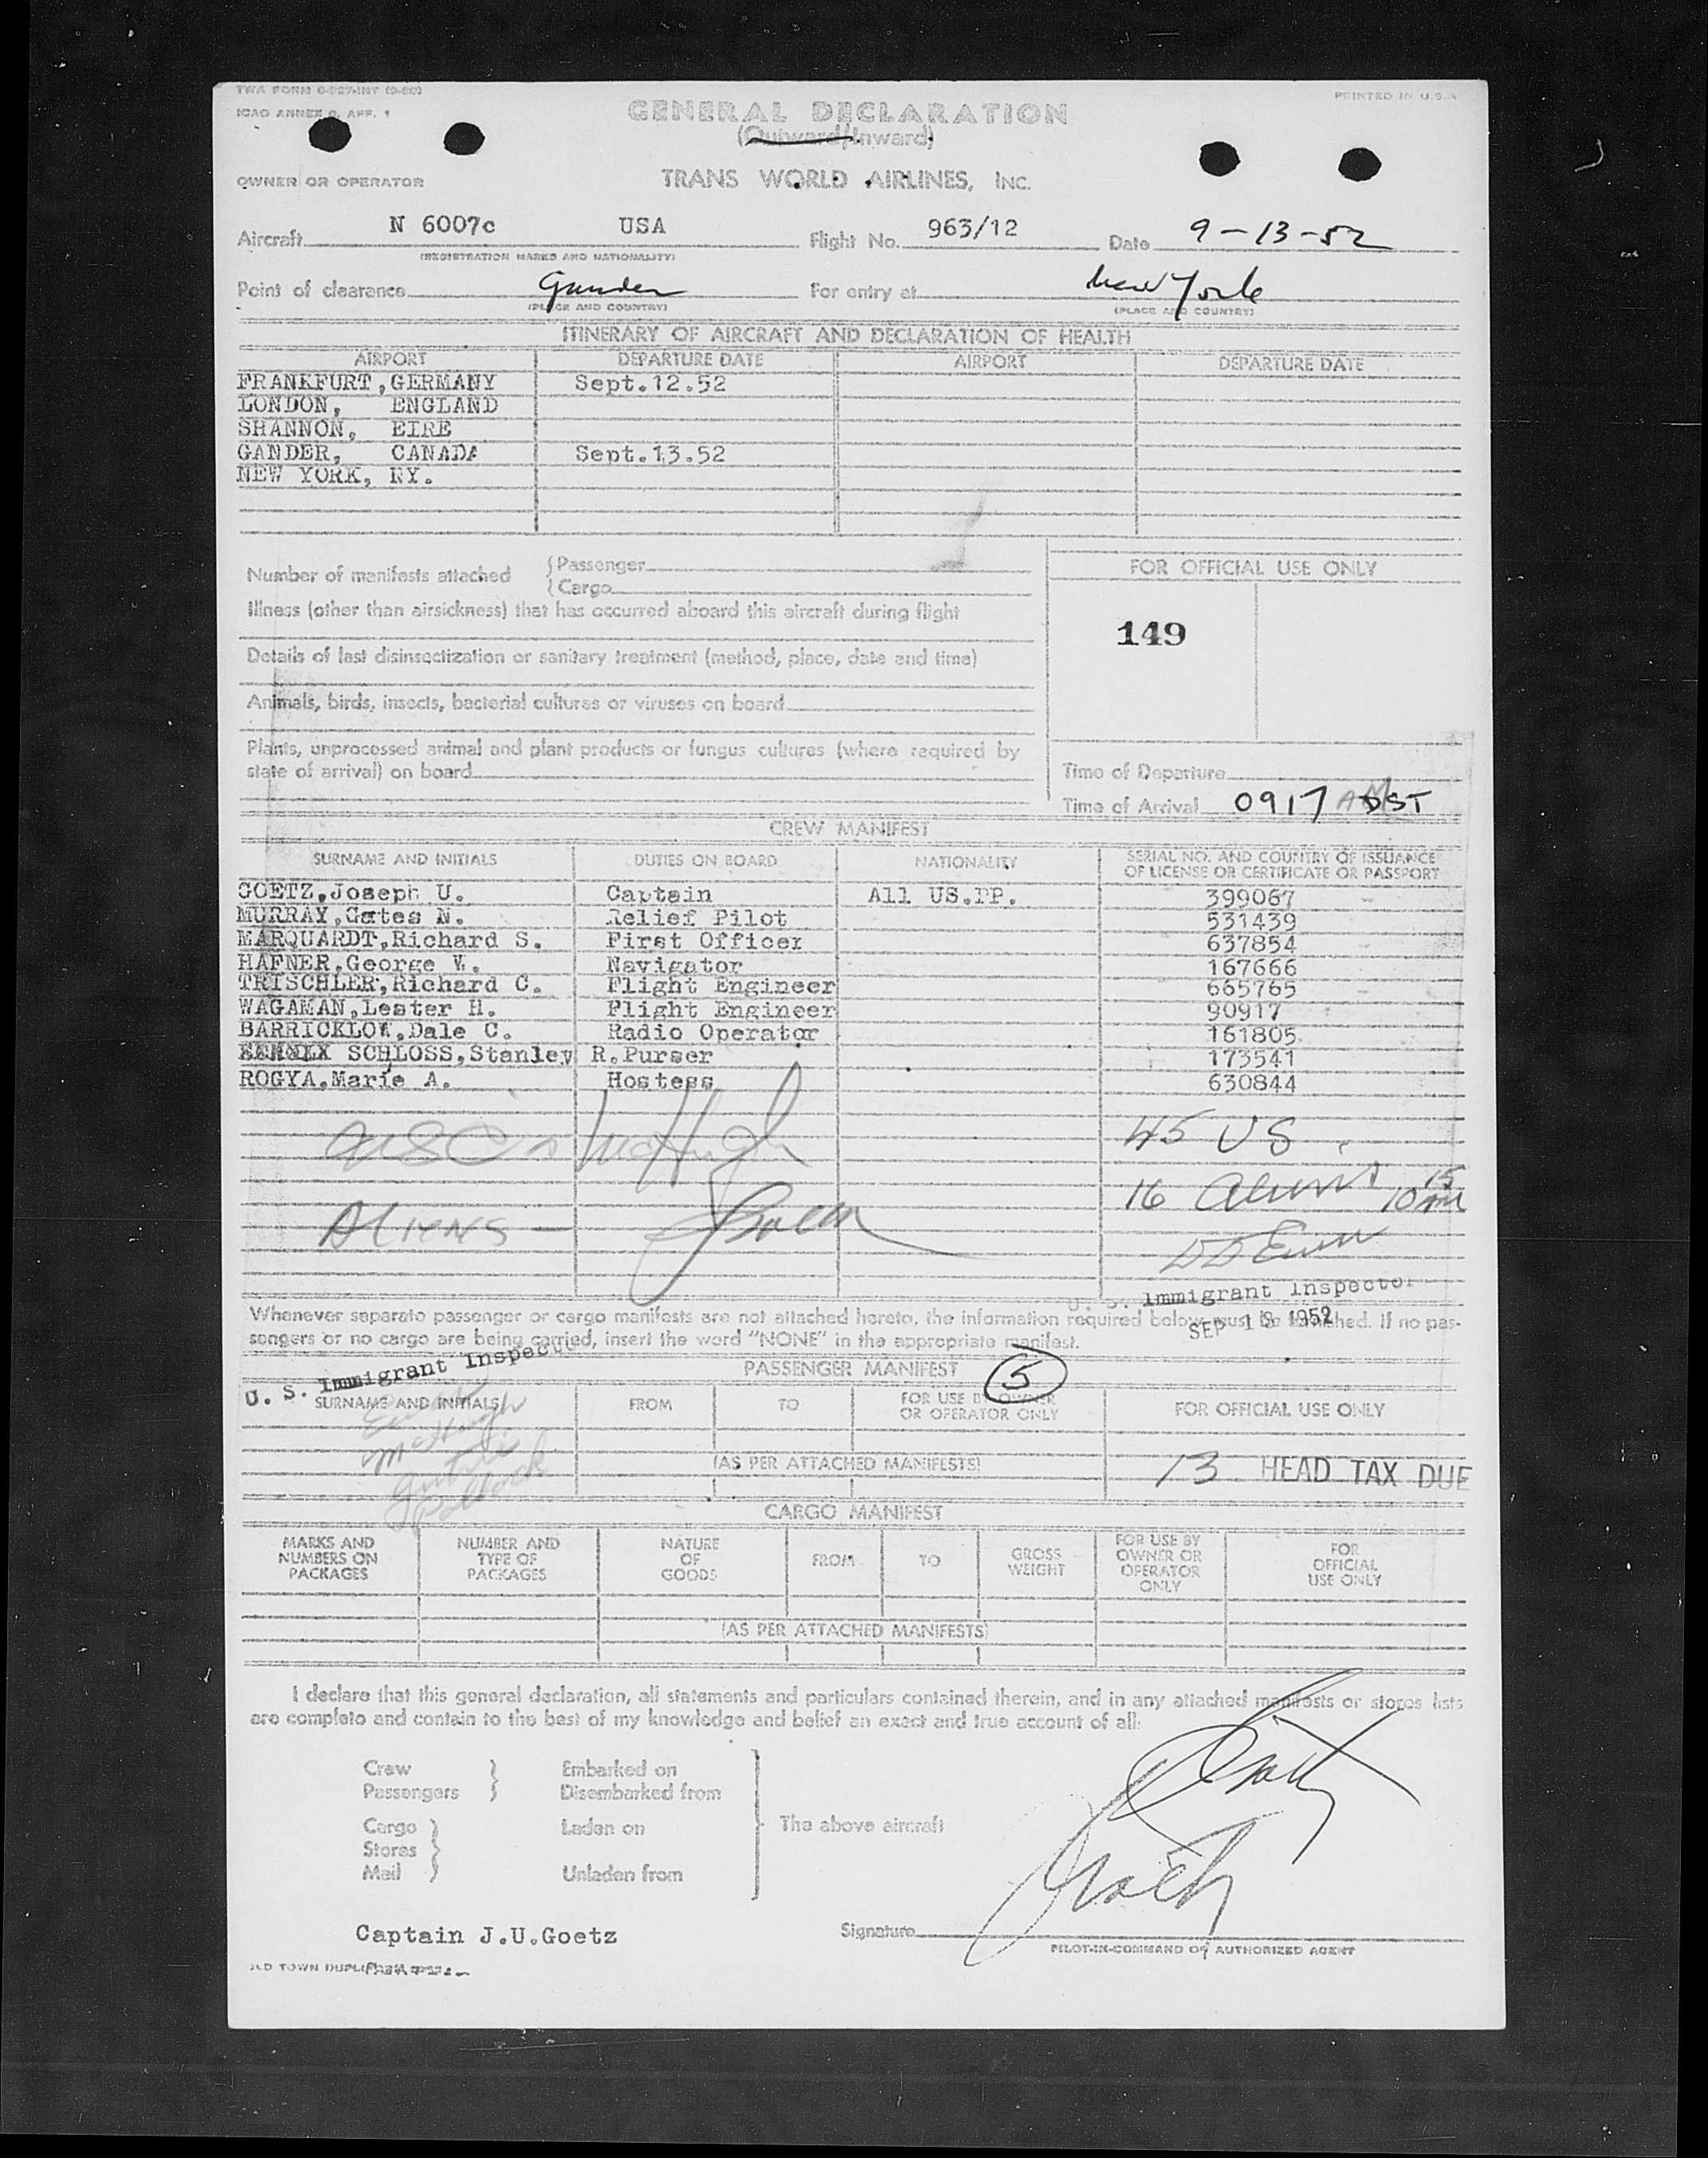 TWA FORM
ICAO ANNEX 9, APP. 1
PRINTED IN U.S.A.
GENERAL DECLARATION
(Outward/Inward)
OWNER OR OPERATOR TRANS WORLD AIRLINES, INC.
Aircraft N 6007c USA Flight No. 963/12 Date 9-13-52
(REGISTRATION MARKS AND NATIONALITY)
Point of clearance Gander For entry at New York
(PLACE AND COUNTRY) (PLACE AND COUNTRY)
ITINERARY OF AIRCRAFT AND DECLARATION OF HEALTH
AIRPORT DEPARTURE DATE AIRPORT DEPARTURE DATE
FRANKFURT, GERMANY Sept.12.52
LONDON, ENGLAND
SHANNON, EIRE
GANDER, CANADA Sept.13.52
NEW YORK, NY.
Number of manifests attached { Passenger
{ Cargo
FOR OFFICIAL USE ONLY
Illness (other than airsickness) that has occurred aboard this aircraft during flight
149
Details of last disinsectization or sanitary treatment (method, place, date and time)
Animals, birds, insects, bacterial cultures or viruses on board
Plants, unprocessed animal and plant products or fungus cultures (where required by
state of arrival) on board
Time of Departure
Time of Arrival 0917 AM DST
CREW MANIFEST
SURNAME AND INITIALS DUTIES ON BOARD NATIONALITY SERIAL NO. AND COUNTRY OF ISSUANCE
OF LICENSE OR CERTIFICATE OR PASSPORT
GOETZ,Joseph U. Captain All US.PP. 399067
MURRAY,Gates N. Relief Pilot 531439
MARQUARDT,Richard S. First Officer 637854
HAFNER,George W. Navigator 167666
TRISCHLER,Richard C. Flight Engineer 665765
WAGAMAN,Lester H. Flight Engineer 90917
BARRICKLOW,Dale C. Radio Operator 161805
SCHLOSS,Stanley R. Purser 173541
ROGYA,Marie A. Hostess 630844
USC McHugh 45 US
16 Aliens 10 15 am
Aliens -
U. S. Immigrant Inspector
Whenever separate passenger or cargo manifests are not attached hereto, the information required below must be furnished. If no pas-
SEP 13 1952
sengers or no cargo are being carried, insert the word "NONE" in the appropriate manifest.
U. S. Immigrant Inspector
PASSENGER MANIFEST 5
SURNAME AND INITIALS FROM TO FOR USE BY OWNER
OR OPERATOR ONLY FOR OFFICIAL USE ONLY
McHugh
(AS PER ATTACHED MANIFESTS) 13 HEAD TAX DUE
CARGO MANIFEST
MARKS AND
NUMBERS ON
PACKAGES
NUMBER AND
TYPE OF
PACKAGES
NATURE
OF
GOODS
FROM
TO
GROSS
WEIGHT
FOR USE BY
OWNER OR
OPERATOR
ONLY
FOR
OFFICIAL
USE ONLY
(AS PER ATTACHED MANIFESTS)
I declare that this general declaration, all statements and particulars contained therein, and in any attached manifests or stores lists
are complete and contain to the best of my knowledge and belief an exact and true account of all:
Crew } Embarked on
Passengers } Disembarked from
Cargo } Laden on The above aircraft
Stores
Mail } Unladen from
Captain J.U.Goetz Signature
PILOT-IN-COMMAND OR AUTHORIZED AGENT